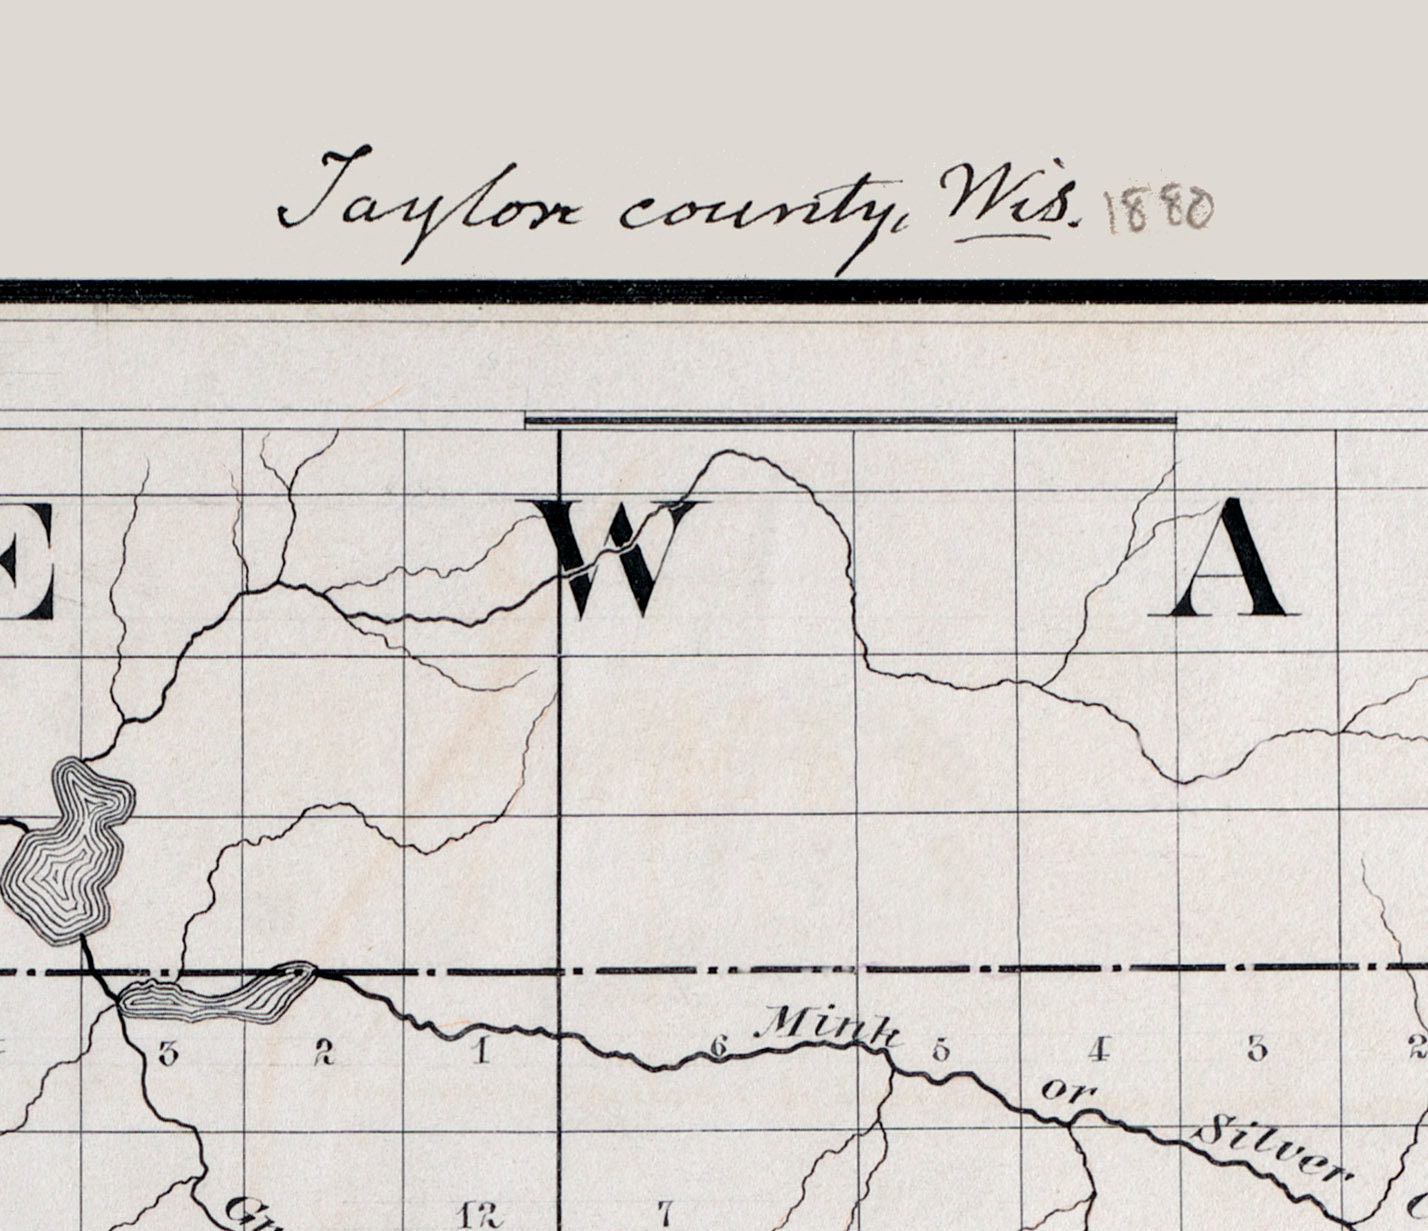 Taylor county, Wis. 1880
E W A
Mink
3 2 1 6 5 4 3 2
or
Silver
12 7